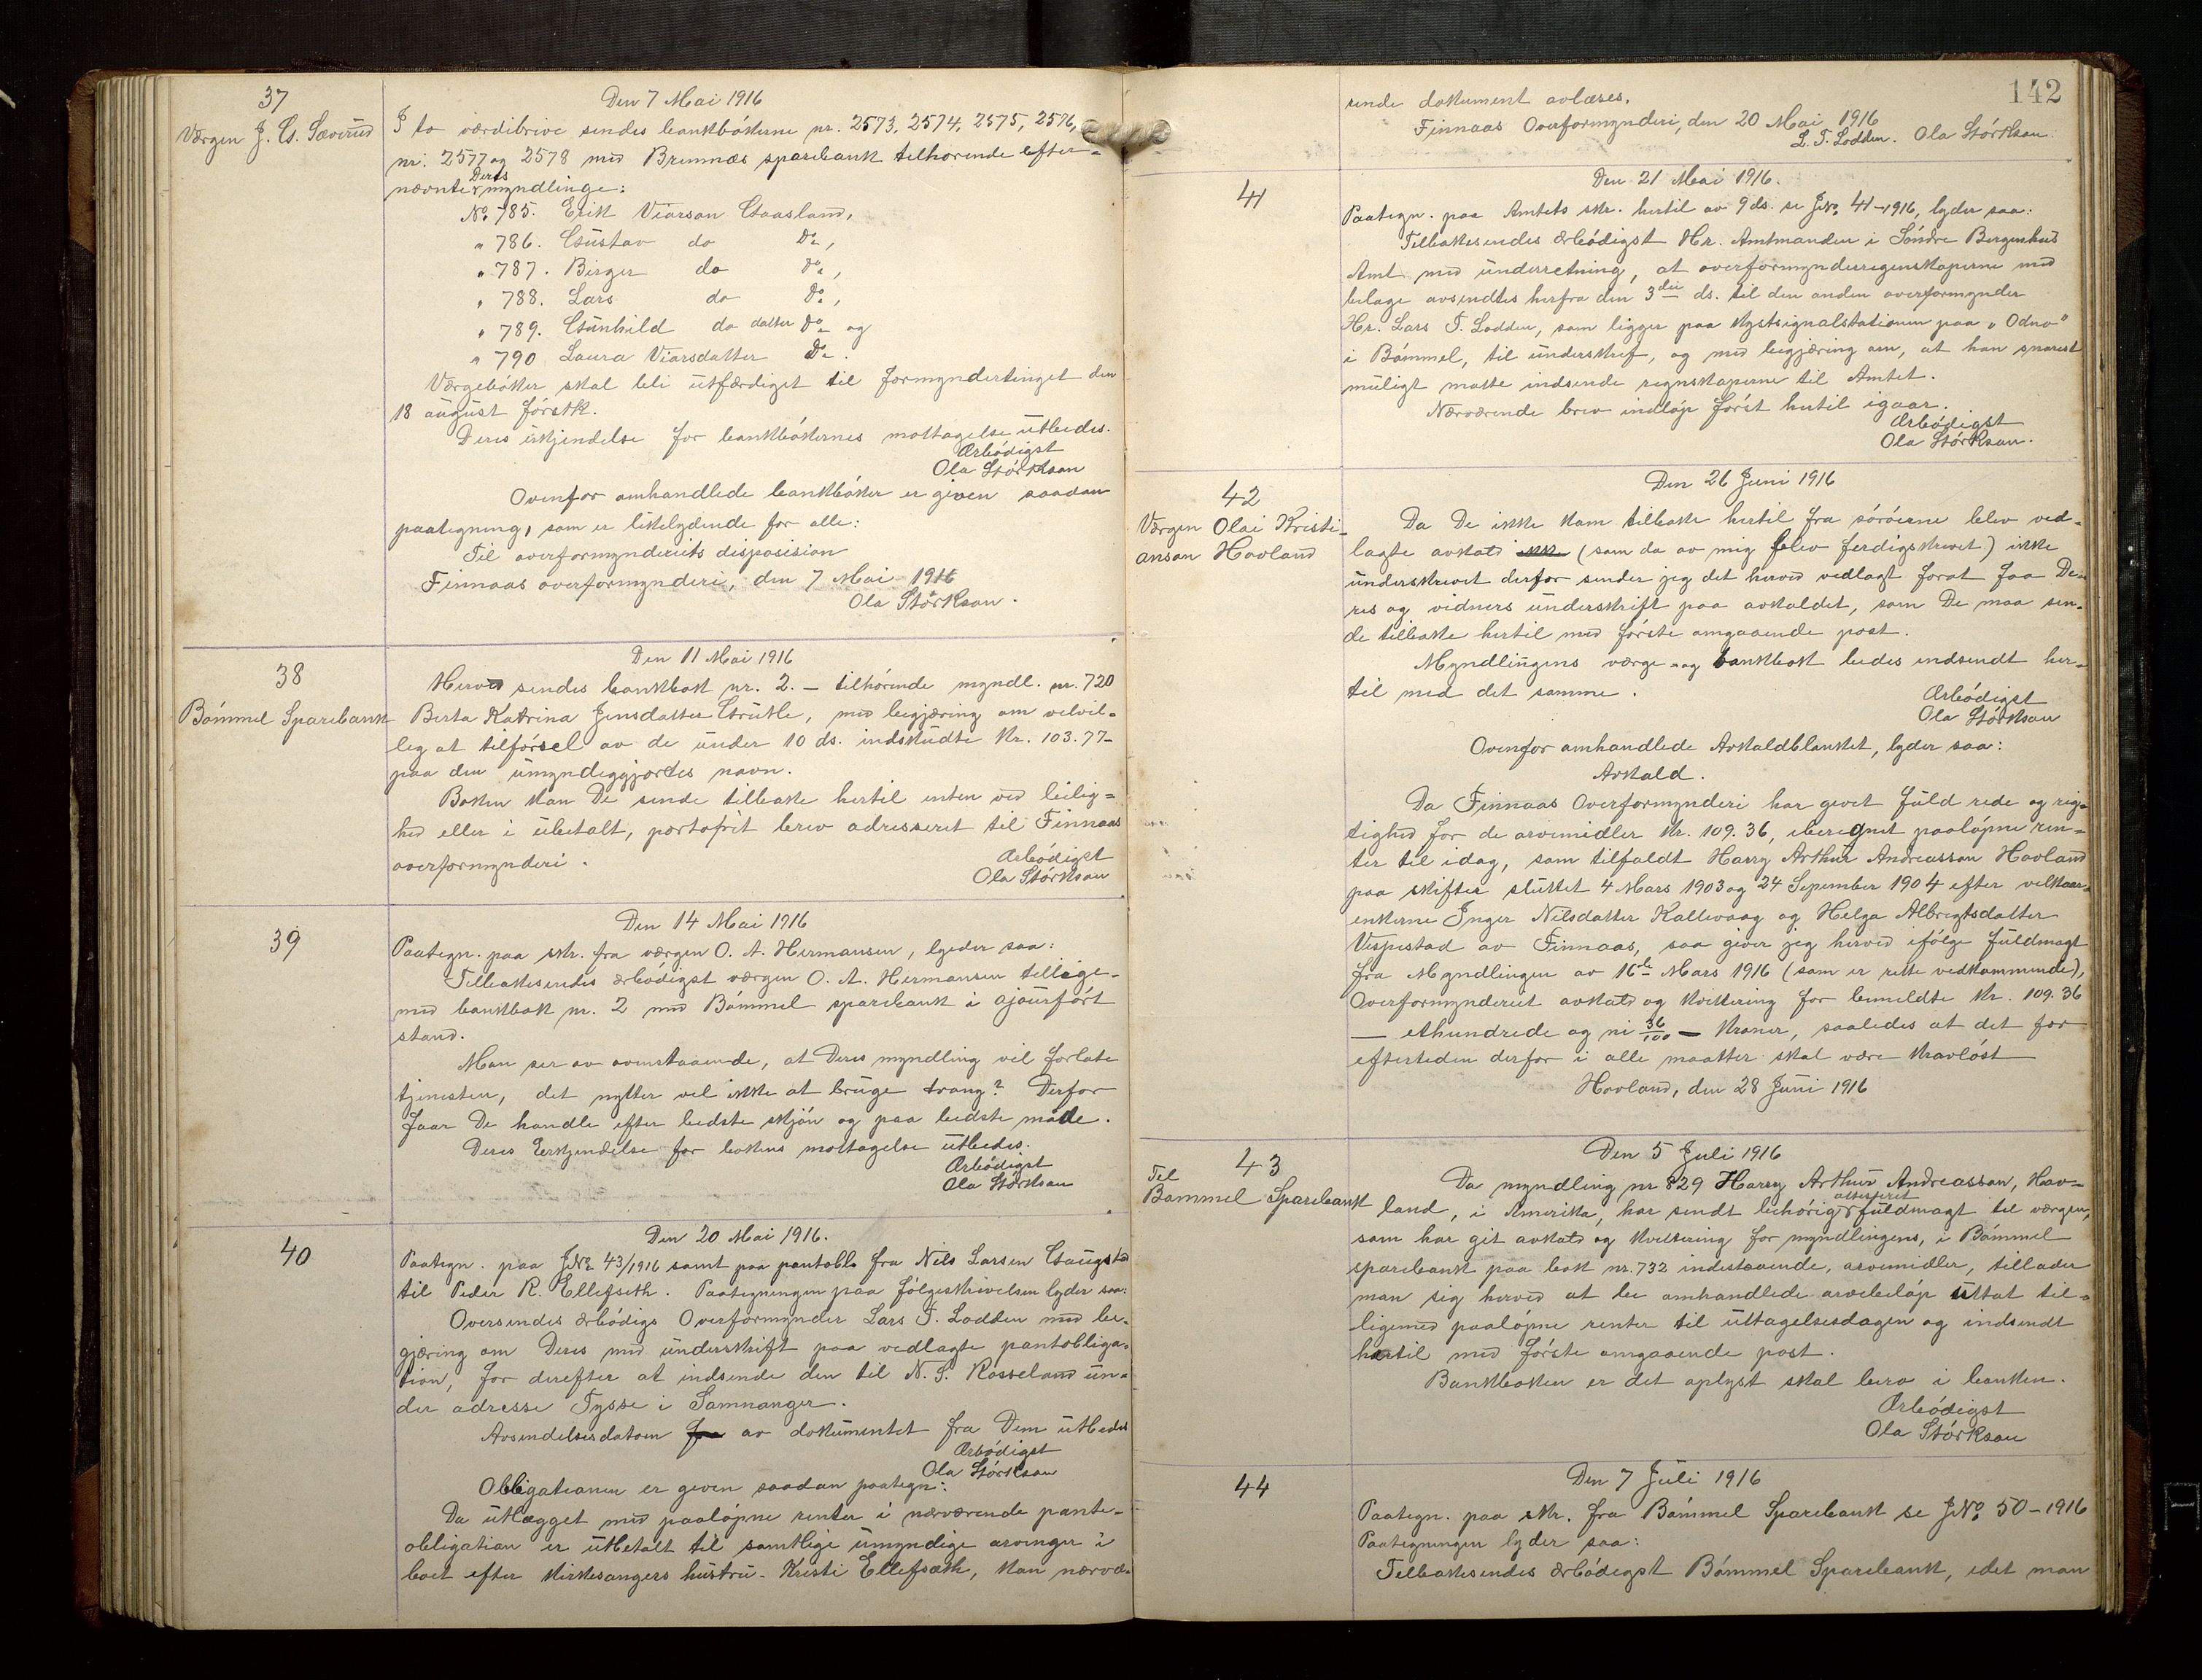 37
Værgen J. Cs. Sæverud
Den 7 Mai 1916
I to værdibrive sendes bankbökerne nr. 2573, 2574, 2575, 2576,
nr. 2577 og 2578 med Bremnæs sparebank tilhorende efter-
nævnte Deres myndlinge:
No 785. Erik Viarson Gaasland,
" 786. Gustav do Do,
" 787. Birger do Do,
" 788. Lars do Do,
" 789. Gunhild do datter Do og
" 790 Laura Viarsdatter Do.
Værgeböker skal bli utfærdiget til formyndertinget den
18 august förstk.
Deres erkjendelse for bankbökernes mottagelse utbedes.
Ærbödigst
Ola Störkson
Ovenfor omhandlede bankböker er given saadan
paategning, som er likelydende for alle:
Til overformynderiets disposision
Finnaas overformynderi, den 7 Mai 1916
Ola Störkson.
38
Bömmel Sparebank
Den 11 Mai 1916
Herved sendes bankbok nr. 2. – tilhörende myndl. nr. 720
Berta Katrina Jensdatter Grutle, med begjæring om velvil-
leg at tilförsel av de under 10 ds. indskudte Kr. 103.77-
paa den umyndiggjortes navn.
Boken kan De sende tilbake hertil enten ved leilig-
hed eller i ubetalt, portofrit brev adresseret til Finnaas
overformynderi.
Ærbödigst
Ola Störkson
39
Den 14 Mai 1916
Paategn. paa skr. fra værgen O. A. Hermansen, lyder saa:
Tilbakesendes ærbödigst værgen O. A. Hermansen tillige-
med bankbok nr. 2 med Bömmel sparebank i ajourfört
stand.
Man ser av ovenstaaende, at Deres myndling vil forlate
tjenesten, det nytter vel ikke at bruge tvang? Derfor
faar De handle efter bedste skjön og paa bedste måde.
Deres Erkjendelse for bokens mottagelse utbedes.
Ærbödigst
Ola Störkson
40
Den 20 Mai 1916.
Paategn. paa JNo 43/1916 samt paa pantobl. fra Nils Larsen Gaugstad
til Peder R. Ellefseth. Paategningen paa fölgeskrivelsen lyder saa:
Oversendes ærbödigs Overformynder Lars T. Lodden med be-
gjæring om Deres med underskrift paa vedlagte pantobliga-
tion, for derefter at indsende den til N. S. Rosseland un-
der adresse Tysse i Samnanger.
Avsendelsesdatoen fra av dokumentet fra Dem utbedes
Ærbödigst
Ola Störkson
Obligationen er given saadan paategn:
Da utlægget med paalöpne renter i nærværende pante-
obligation er utbetalt til samtlige umyndige arvinger i
boet efter kirkesangers hustru Kristi Ellefsæth, kan nærvæ-
142
rende dokument avlæses.
Finnaas Overformynderi, den 20 Mai 1916
L. T. Lodden. Ola Störkson.
41
Den 21 Mai 1916.
Paategn. paa Amtets skr. hertil av 9 ds. se JNo 41-1916, lyder saa:
Tilbakesendes ærbödigst Hr. Amtmanden i Söndre Bergenhus
Amt med underretning, at overformynderregnskaperne med
bilage avsendtes herfra den 3die ds. til den anden overformynder
Hr. Lars T. Lodden, som ligger paa Kystsignalstationen paa "Odno"
i Bömmel, til underskrif, og med begjæring om, at han snarest
muligt maatte indsende regnskaperne til Amtet.
Nærværende brev indlöp först hertil igaar.
Ærbödigst
Ola Störkson.
42
Værgen Olai Kristi-
anson Hovland
Den 26 Juni 1916
Da De ikke kom tilbake hertil fra söröerne blev ved-
lagte avkald (som da av mig blev ferdigskrevet) ikke
underskrevet derfor sender jeg det herved vedlagt forat faa De-
res og vidners underskrift paa avkaldet, som De maa sen-
de tilbake hertil med förste omgaaende post.
Myndlingens værge- og bankbok bedes indsendt her-
til med det samme.
Ærbödigst
Ola Störkson
Ovenfor omhandlede Avkaldblanket, lyder saa:
Avkald.
Da Finnaas Overformynderi har gevet fuld rede og rig-
tighed for de arvemidler Kr. 109.36, iberegnet paalöpne ren-
ter til idag, som tilfaldt Harry Arthur Andreasson Hovland
paa skifter sluttet 4 Mars 1903 og 24 Sepember 1904 efter velkaar-
enkerne Inger Nilsdatter Kallevaag og Helga Albregtsdatter
Vespestad av Finnaas, saa giver jeg herved ifölge fuldmagt
fra Myndlingen av 16de Mars 1916 (som er rette vedkommende),
Overformynderiet avkald og kvittering for bemeldte Kr. 109.36
— ethundrede og ni 36/100 — Kroner, saaledes at det for
eftertiden derfor i alle maatter skal være kravlöst
Hovland, den 28 Juni 1916
43
Til
Bömmel Sparebank
Den 5 Juli 1916
Da myndling nr 829 Harry Arthur Andreasson, Hov-
land, i Amerika, har sendt behörig attesteret fuldmagt til værgen,
som har git avkald og kvittering for myndlingens, i Bömmel
sparebank paa bok nr. 732 indestaaende, arvemidler, tillader
man sig herved at be omhandlede arvebelöp uttat til-
ligemed paalöpne renter til uttagelsesdagen og indsendt
hertil med förste omgaaende post.
Bankboken er det oplyst skal bero i banken.
Ærbödigst
Ola Störkson
44
Den 7 Juli 1916
Paategn. paa skr. fra Bömmel Sparebank se JNo 50-1916
Paategningen lyder saa:
Tilbakesendes ærbödigst Bömmel Sparebank, idet man